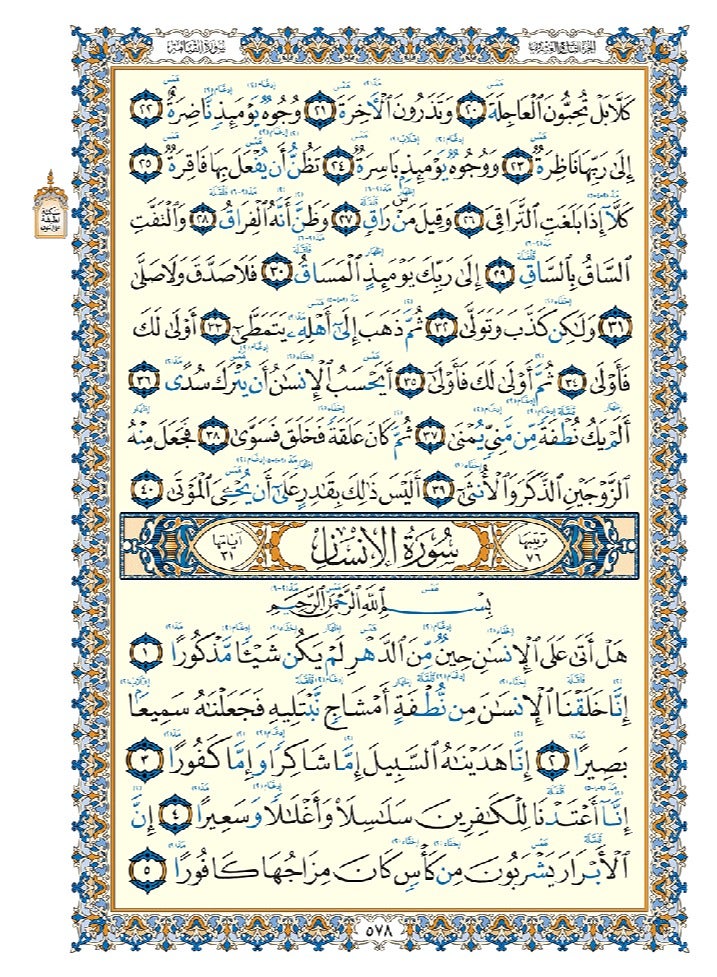 الجزء التاسع والعشرون سورة القيامة
كَلَّا بَلْ تُحِبُّونَ ٱلْعَاجِلَةَ ٢٠ وَتَذَرُونَ ٱلْأٓخِرَةَ ٢١ وُجُوهٌ يَوْمَئِذٍ نَّاضِرَةٌ ٢٢
إِلَىٰ رَبِّهَا نَاظِرَةٌ ٢٣ وَوُجُوهٌ يَوْمَئِذٍۭ بَاسِرَةٌ ٢٤ تَظُنُّ أَن يُفْعَلَ بِهَا فَاقِرَةٌ ٢٥
كَلَّآ إِذَا بَلَغَتِ ٱلتَّرَاقِيَ ٢٦ وَقِيلَ مَنْ رَاقٍ ٢٧ وَظَنَّ أَنَّهُ ٱلْفِرَاقُ ٢٨ وَٱلْتَفَّتِ
ٱلسَّاقُ بِٱلسَّاقِ ٢٩ إِلَىٰ رَبِّكَ يَوْمَئِذٍ ٱلْمَسَاقُ ٣٠ فَلَا صَدَّقَ وَلَا صَلَّىٰ
٣١ وَلَٰكِن كَذَّبَ وَتَوَلَّىٰ ٣٢ ثُمَّ ذَهَبَ إِلَىٰٓ أَهْلِهِۦ يَتَمَطَّىٰٓ ٣٣ أَوْلَىٰ لَكَ
فَأَوْلَىٰ ٣٤ ثُمَّ أَوْلَىٰ لَكَ فَأَوْلَىٰٓ ٣٥ أَيَحْسَبُ ٱلْإِنسَٰنُ أَن يُتْرَكَ سُدًى ٣٦
أَلَمْ يَكُ نُطْفَةً مِّن مَّنِيٍّ يُمْنَىٰ ٣٧ ثُمَّ كَانَ عَلَقَةً فَخَلَقَ فَسَوَّىٰ ٣٨ فَجَعَلَ مِنْهُ
ٱلزَّوْجَيْنِ ٱلذَّكَرَ وَٱلْأُنثَىٰٓ ٣٩ أَلَيْسَ ذَٰلِكَ بِقَٰدِرٍ عَلَىٰٓ أَن يُحْـِۧيَ ٱلْمَوْتَىٰ ٤٠
ترتيبها ٧٦ سُورَةُ الإِنسَانِ آياتها ٣١
بِسْمِ ٱللَّهِ ٱلرَّحْمَٰنِ ٱلرَّحِيمِ
هَلْ أَتَىٰ عَلَى ٱلْإِنسَٰنِ حِينٌ مِّنَ ٱلدَّهْرِ لَمْ يَكُن شَيْـًٔا مَّذْكُورًا ١
إِنَّا خَلَقْنَا ٱلْإِنسَٰنَ مِن نُّطْفَةٍ أَمْشَاجٍ نَّبْتَلِيهِ فَجَعَلْنَٰهُ سَمِيعًۢا
بَصِيرًا ٢ إِنَّا هَدَيْنَٰهُ ٱلسَّبِيلَ إِمَّا شَاكِرًا وَإِمَّا كَفُورًا ٣
إِنَّآ أَعْتَدْنَا لِلْكَٰفِرِينَ سَلَٰسِلَا۟ وَأَغْلَٰلًا وَسَعِيرًا ٤ إِنَّ
ٱلْأَبْرَارَ يَشْرَبُونَ مِن كَأْسٍ كَانَ مِزَاجُهَا كَافُورًا ٥
٥٧٨